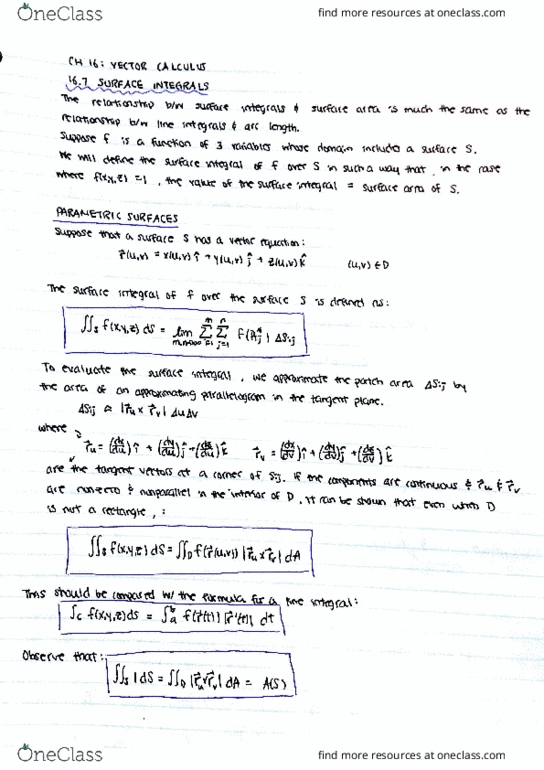 OneClass find more resources at oneclass.com
CH 16: VECTOR CALCULUS
16.7 SURFACE INTEGRALS
The relationship b/w surface integrals & surface area is much the same as the
relationship b/w line integrals & arc length.
Suppose f is a function of 3 variables whose domain includes a surface S.
We will define the surface integral of f over S in such a way that, in the case
where f(x,y,z)=1, the value of the surface integral = surface area of S.
PARAMETRIC SURFACES
Suppose that a surface S has a vector equation:
r⃗(u,v) = x(u,v) î + y(u,v) ĵ + z(u,v) k̂ (u,v) ∈ D
The surface integral of f over the surface S is defined as:
∬_S f(x,y,z) dS = lim_{m,n→∞} Σ_{i=1}^{m} Σ_{j=1}^{n} f(P*_{ij}) ΔS_{ij}
To evaluate the surface integral, we approximate the patch area ΔS_{ij} by
the area of an approximating parallelogram in the tangent plane.
ΔS_{ij} ≈ |r⃗_u × r⃗_v| Δu Δv
where
r⃗_u = (dx/du) î + (dy/du) ĵ + (dz/du) k̂ r⃗_v = (dx/dv) î + (dy/dv) ĵ + (dz/dv) k̂
are the tangent vectors at a corner of S_{ij}. If the components are continuous & r⃗_u & r⃗_v
are nonzero & nonparallel in the interior of D, it can be shown that even when D
is not a rectangle, :
∬_S f(x,y,z) dS = ∬_D f(r⃗(u,v)) |r⃗_u × r⃗_v| dA
This should be compared w/ the formula for a line integral:
∫_C f(x,y,z) ds = ∫_a^b f(r⃗(t)) |r⃗'(t)| dt
Observe that: ∬_S 1 dS = ∬_D |r⃗_u × r⃗_v| dA = A(S)
OneClass find more resources at oneclass.com